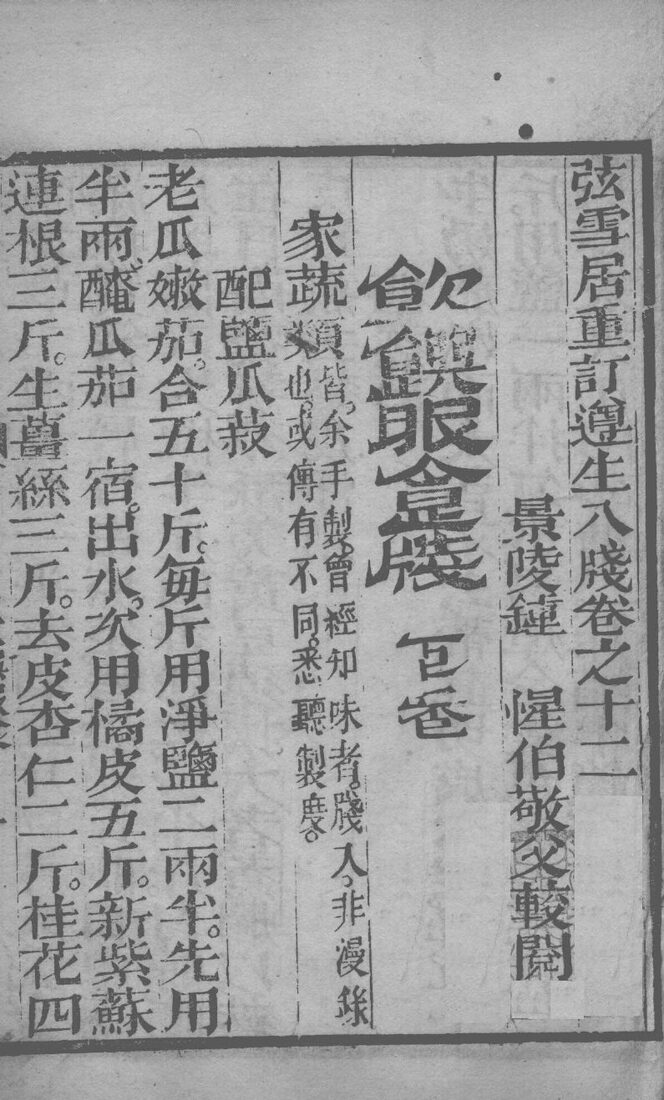 弦雪居重訂遵生八牋卷之十二
景陵鍾 惺伯敬父較閱
飲饌服食牋 下卷
家蔬類皆余手製曾經知味者牋入非漫錄
也或傳有不同悉聽製度
配鹽瓜菽
老瓜嫩茄合五十斤每斤用淨鹽二兩半先用
半兩醃瓜茄一宿出水次用橘皮五斤新紫蘇
連根三斤生薑絲三斤去皮杏仁二斤桂花四